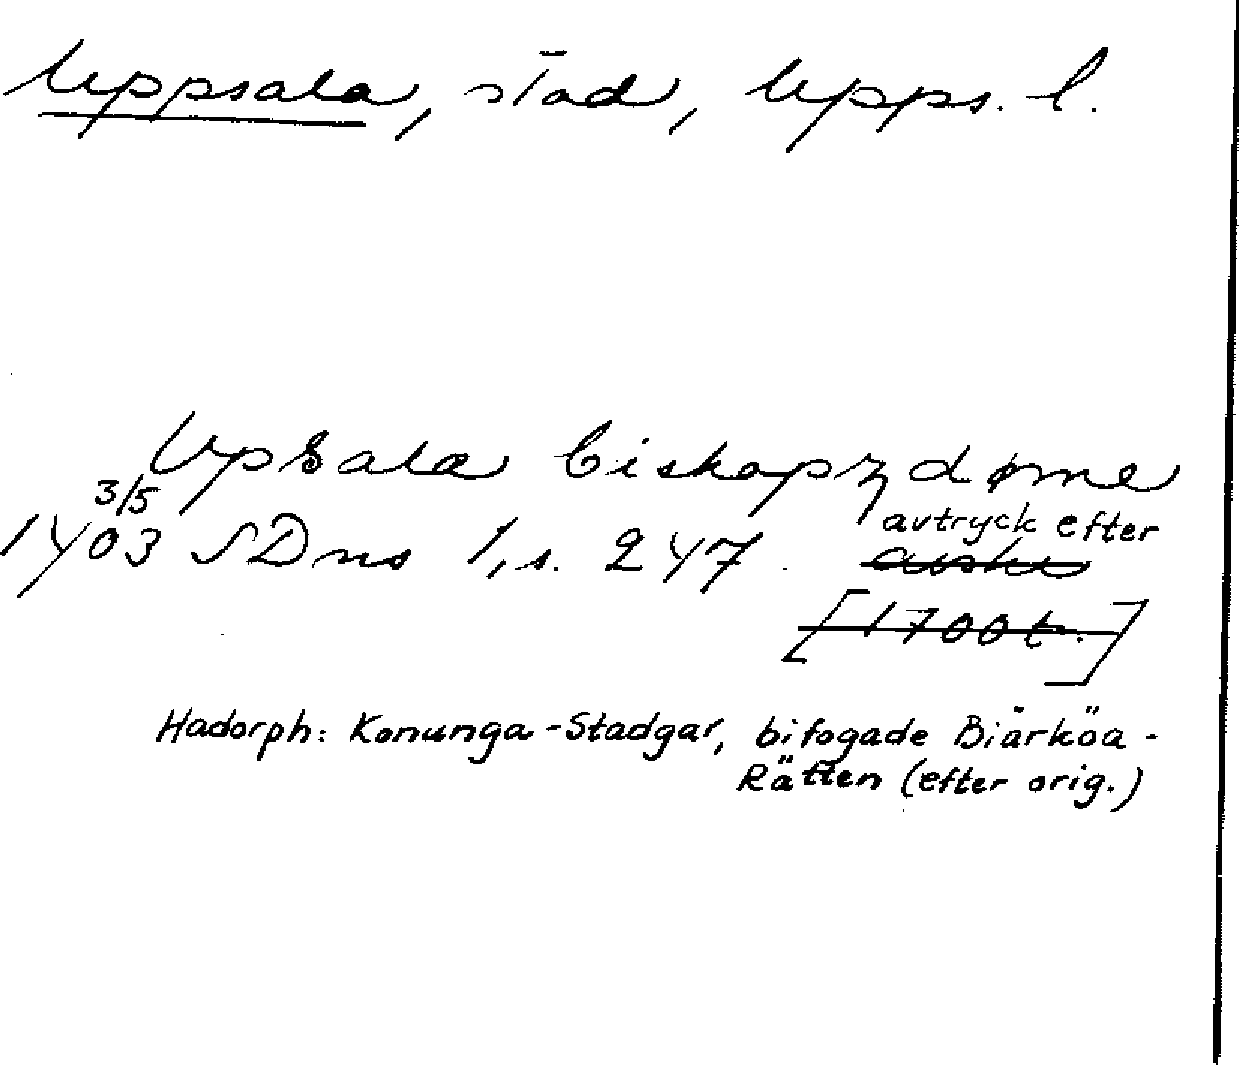 Uppsala, stad, Upps. l.
Upsala biskopzdøme
3/5 avtryck efter
1403 SDns 1, s. 247. avskr
[1700t.]
Hadorph: Konunga-Stadgar, bifogade Biärköa-
Rätten (efter orig.)